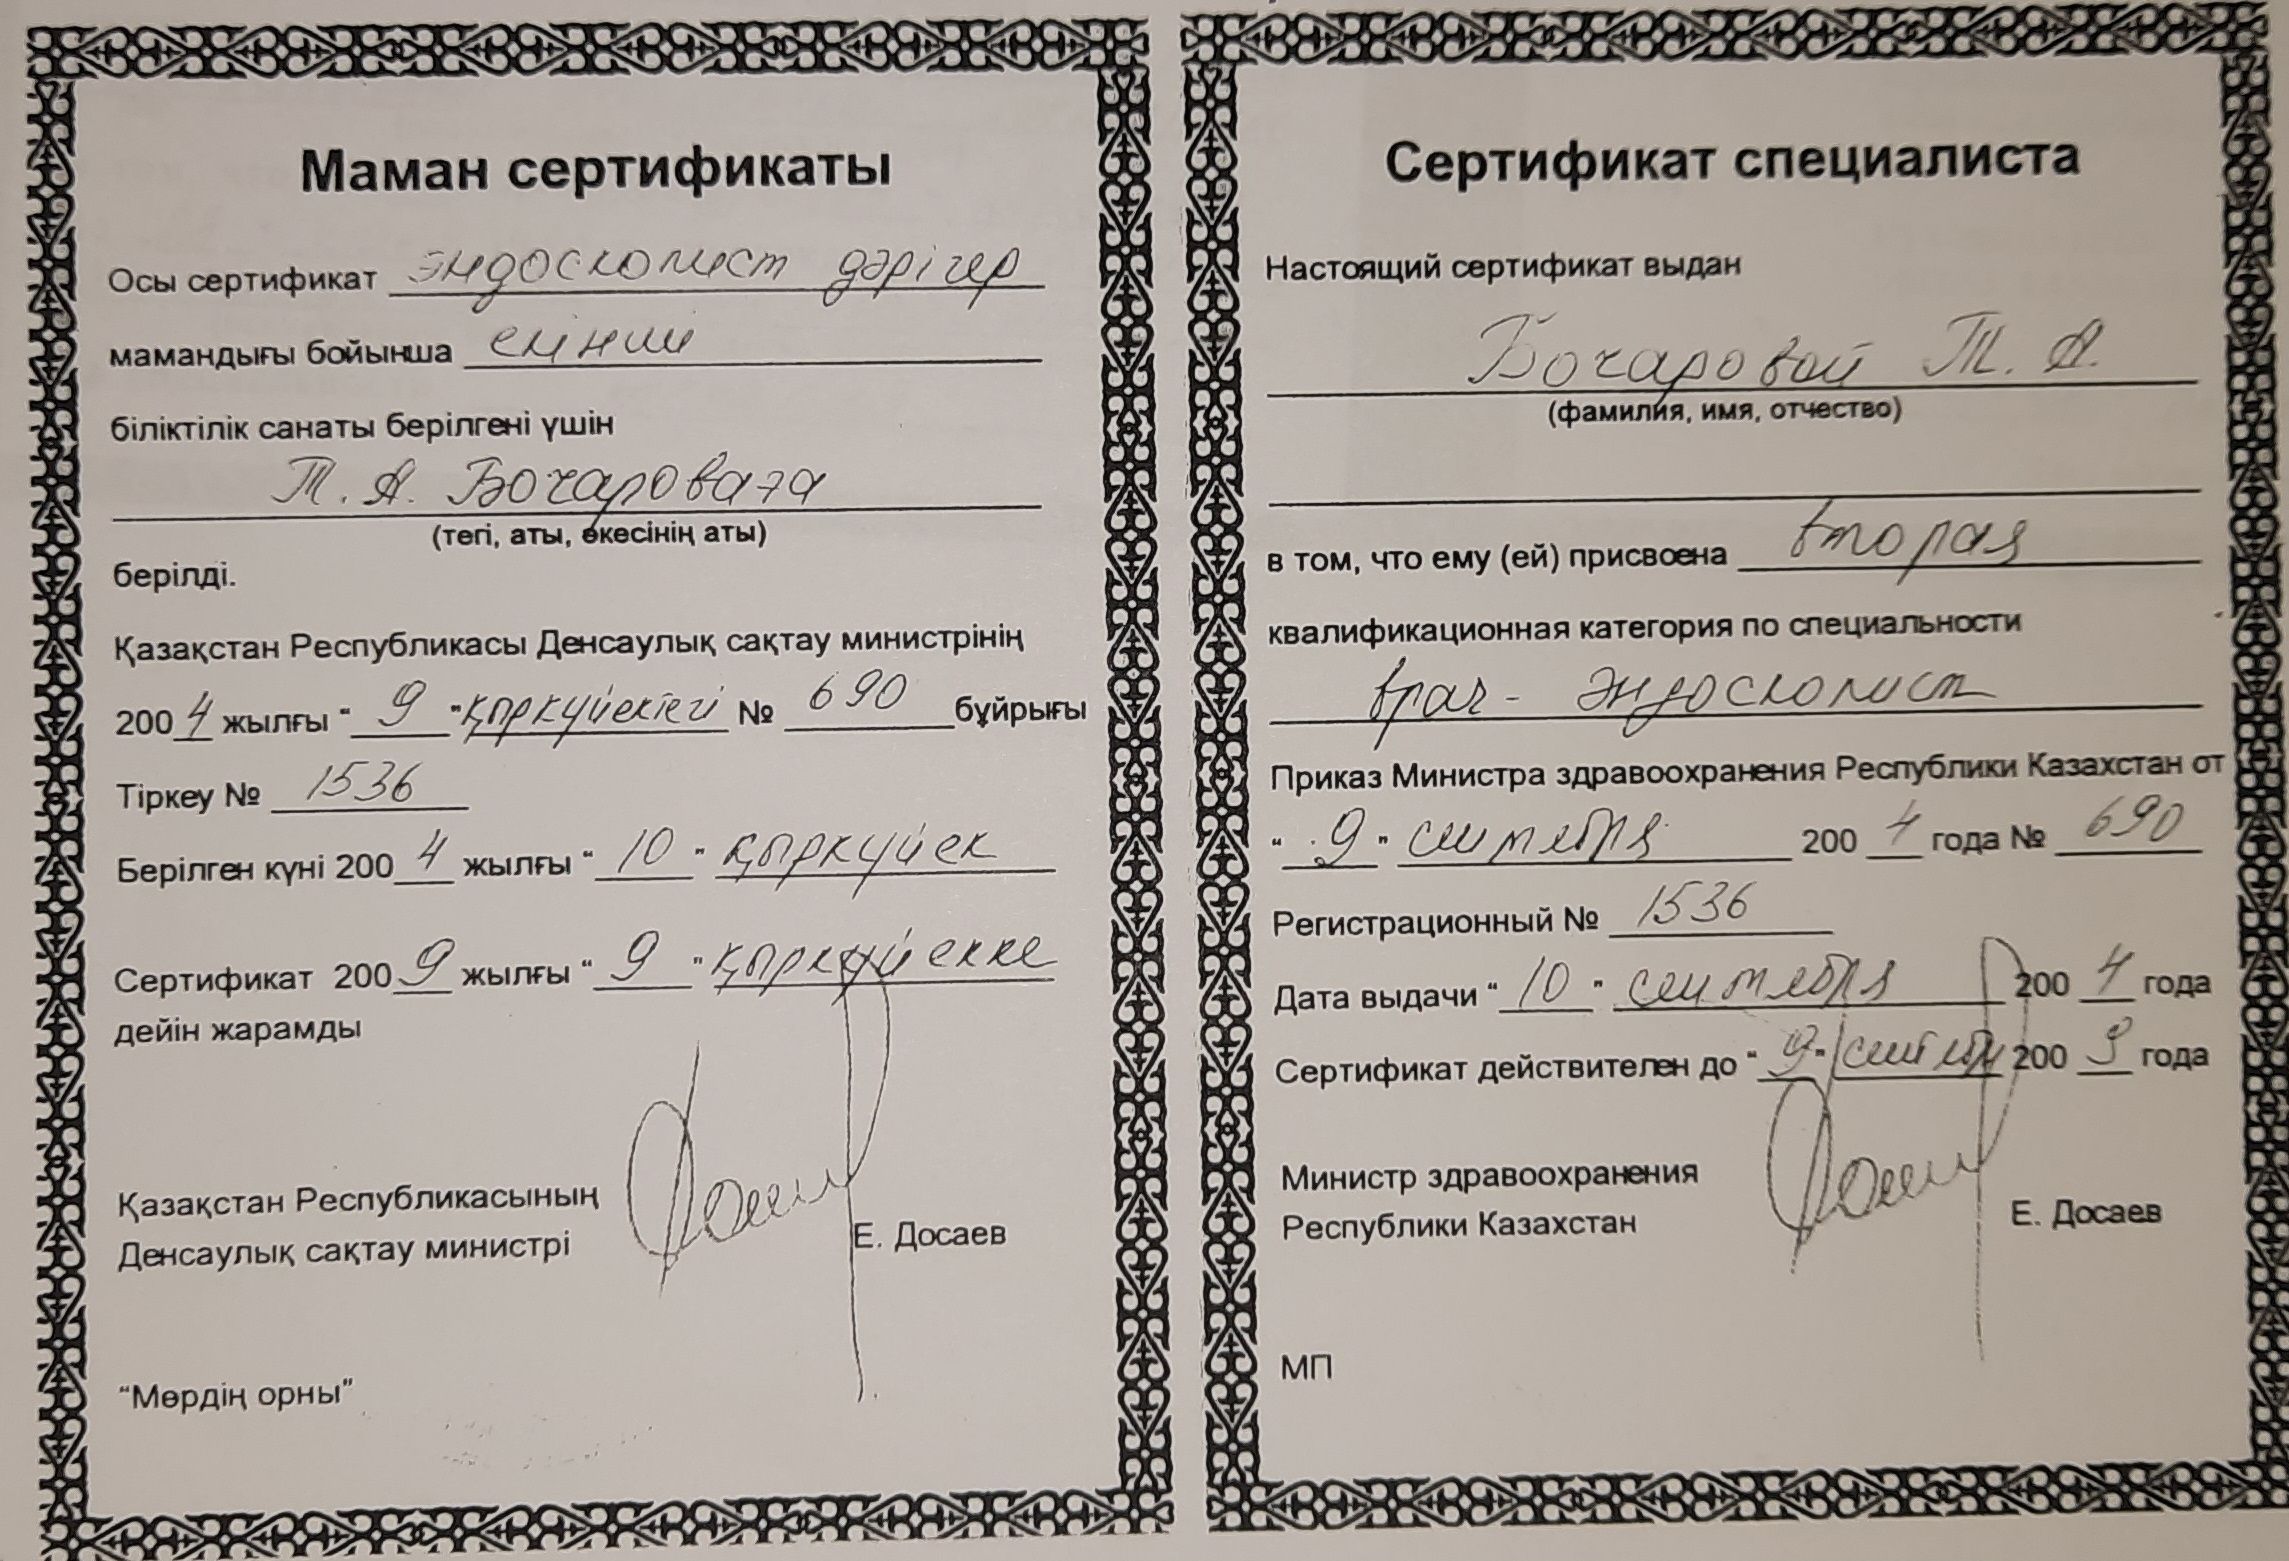 Маман сертификаты
Осы сертификат эндоскопист дәрігер
мамандығы бойынша екінші
біліктілік санаты берілгені үшін
Т. А. Бочароваға
(тегі, аты, әкесінің аты)
берілді.
Қазақстан Республикасы Денсаулық сақтау министрінің
2004 жылғы "9" қыркүйектегі № 690 бұйрығы
Тіркеу № 1536
Берілген күні 2004 жылғы "10" қыркүйек
Сертификат 2009 жылғы "9" қыркүйекке
дейін жарамды
Қазақстан Республикасының
Денсаулық сақтау министрі Е. Досаев
"Мөрдің орны"
Сертификат специалиста
Настоящий сертификат выдан
Бочаровой Т. А.
(фамилия, имя, отчество)
в том, что ему (ей) присвоена вторая
квалификационная категория по специальности
врач - эндоскопист
Приказ Министра здравоохранения Республики Казахстан от
"9" сентября 2004 года № 690
Регистрационный № 1536
Дата выдачи "10" сентября 2004 года
Сертификат действителен до "9" сентября 2009 года
Министр здравоохранения
Республики Казахстан Е. Досаев
МП